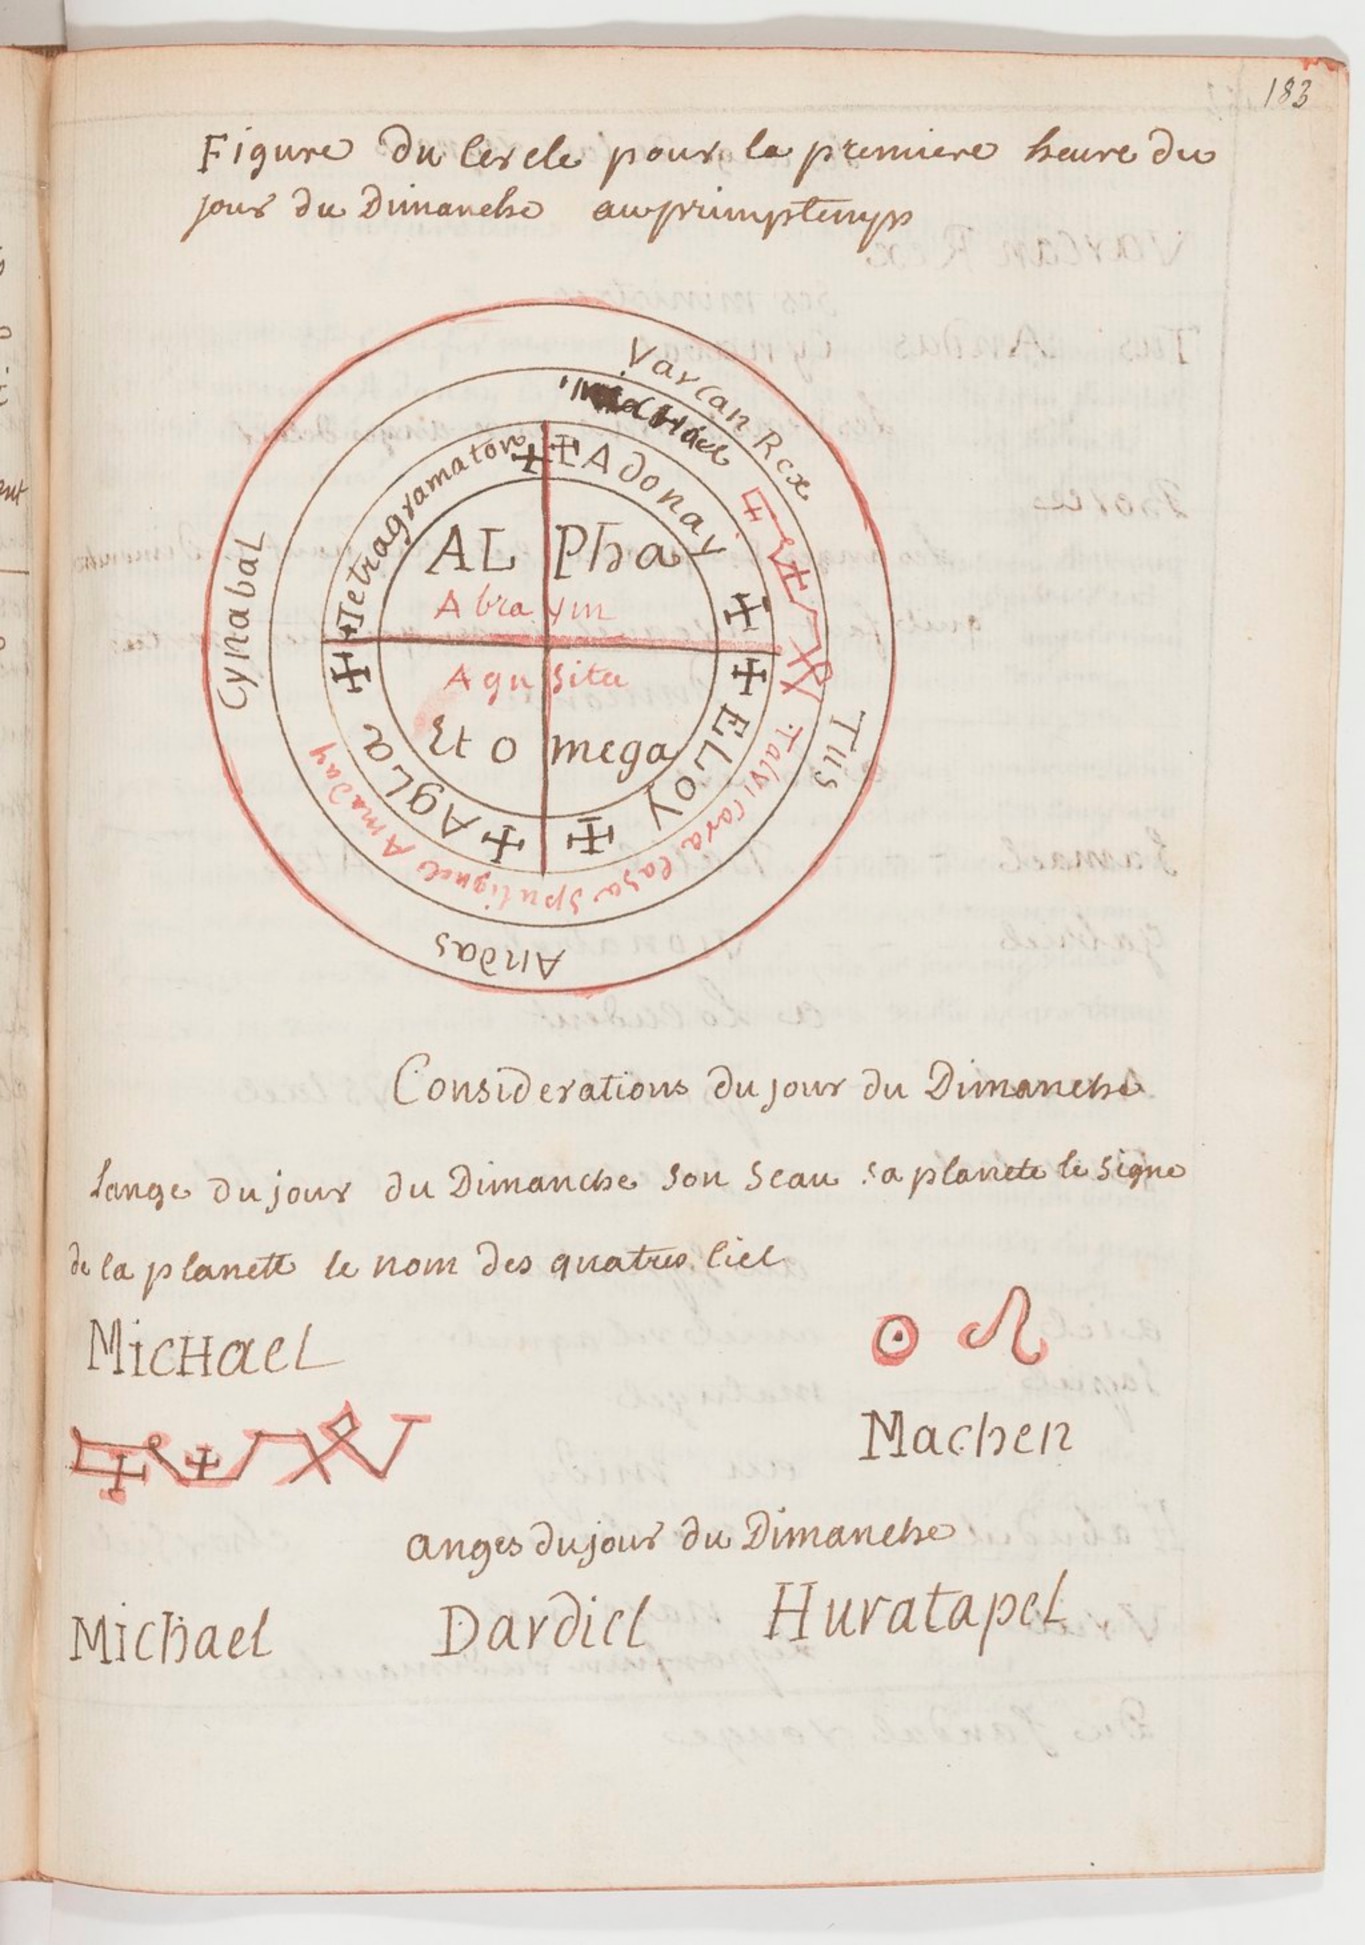 183
Figure du Cercle pour la premiere heure du
jour du Dimanche au primptemps
Varcan Rex
Michael
Tus
Andas
Cynabal
Tetragramaton
Adonay
ELoy
AgLa
Talvi Coralasa Sputignel Amaday
AL Pha
Abra ym
Aqu sita
Et O mega
Considerations du jour du Dimanche
Lange du jour du Dimanche Son Seau sa planete le Signe
de la planett le nom des quatres Ciel
MicHaeL
☉ ♌
Machen
anges du jour du Dimanche
Michael Dardiel HuratapeL